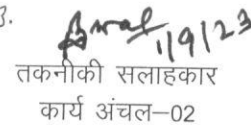 3.
1/9/23
तकनीकी सलाहकार
कार्य अंचल–02